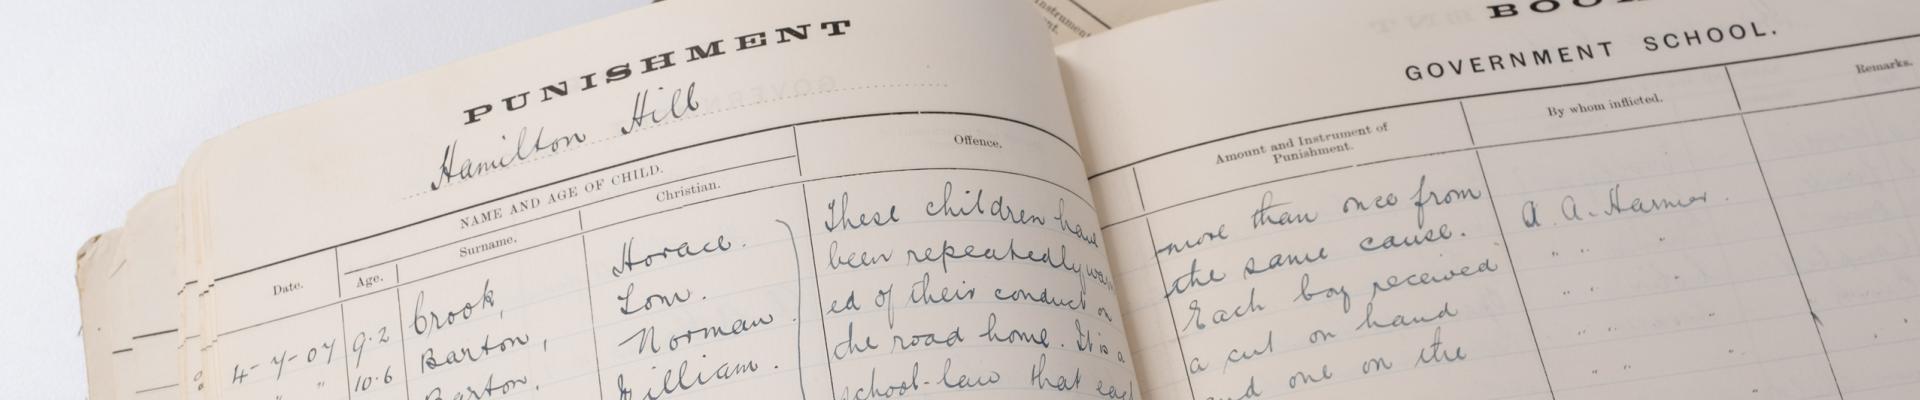 PUNISHMENT
Hamilton Hill
NAME AND AGE OF CHILD.
Offence.
Date.
Age.
Surname.
Christian.
4-7-07 9.2 Crook, Horace.
" 10.6 Barton, Tom.
Barton, Norman
William.
These children have
been repeatedly
ed of their conduct on
the road home. It is a
school-law that
BOO
GOVERNMENT SCHOOL.
Amount and Instrument of
Punishment.
By whom inflicted.
Remarks.
more than once from
the same cause.
Each boy received
a cut on hand
and one on the
A. A. Harmer.
" " "
" " "
" " "
Instrument